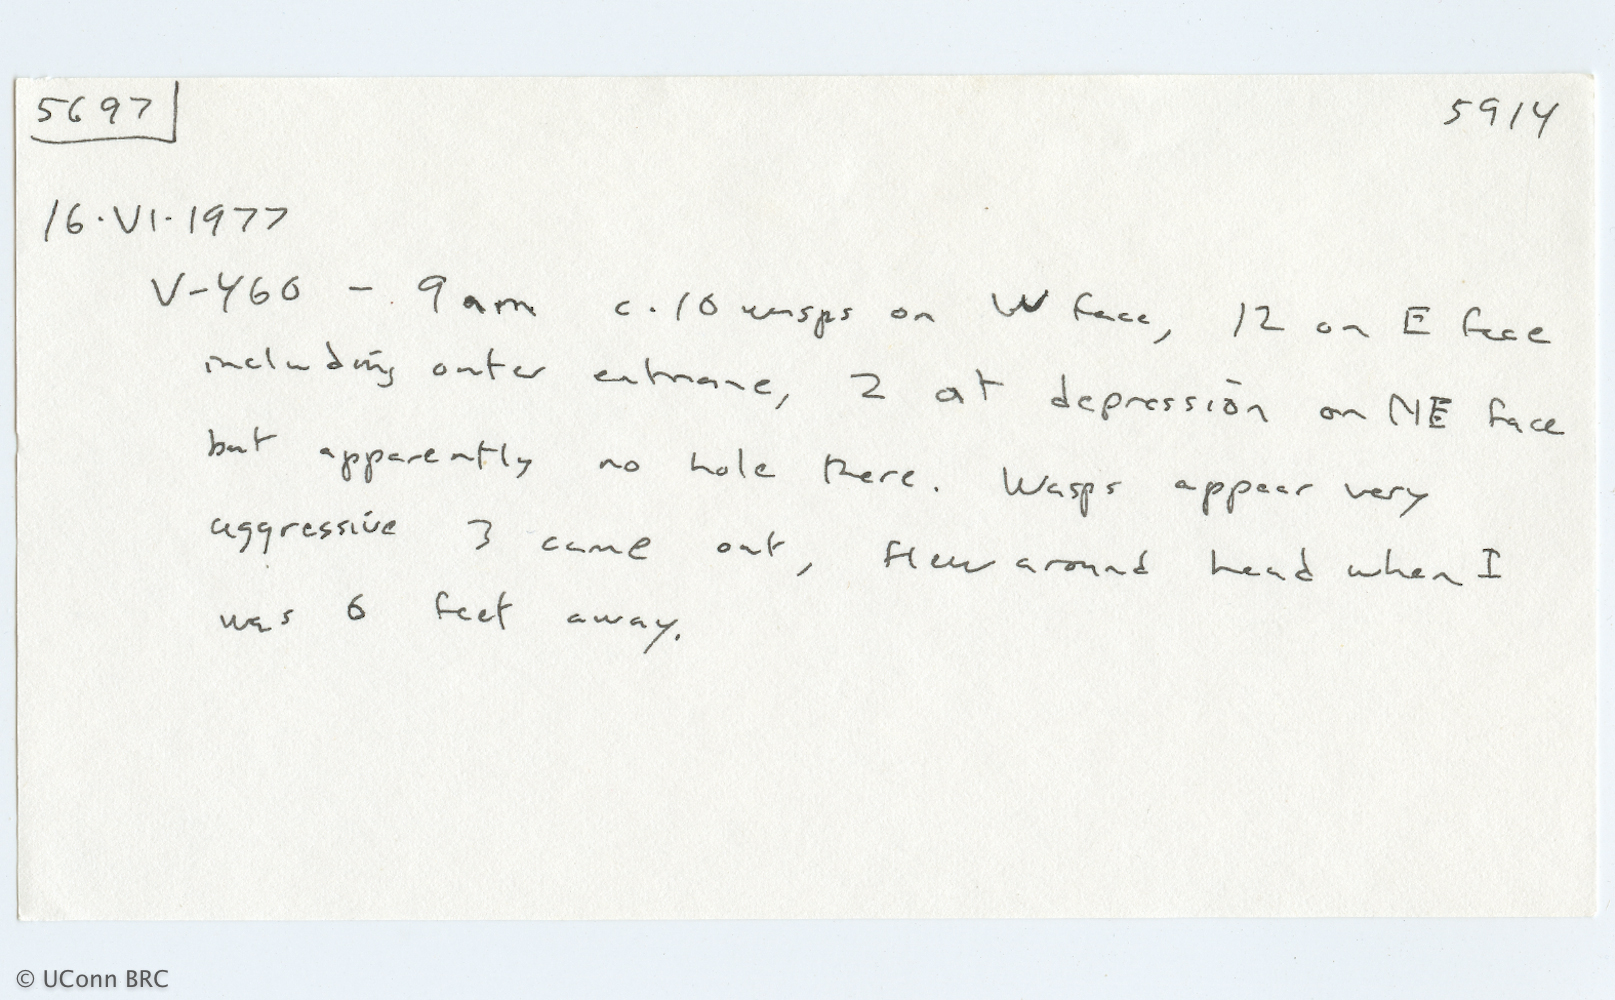 5697 5914
16.VI.1977
V-460 - 9am c.10 wasps on W face, 12 on E face
including outer entrance, 2 at depression on NE face
but apparently no hole there. Wasps appear very
aggressive 3 came out, flew around head when I
was 6 feet away.
© UConn BRC